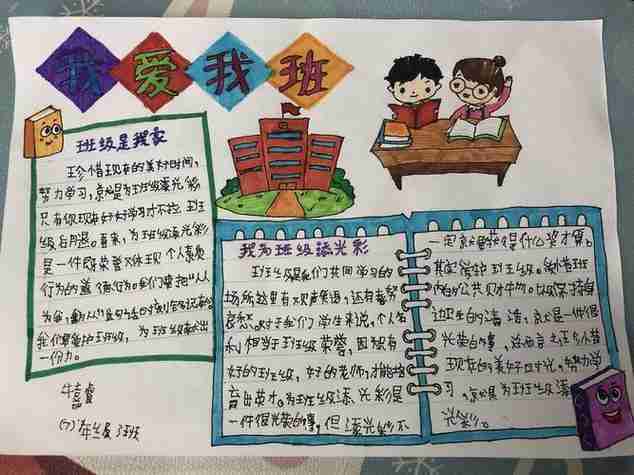 我爱我班
班级是我家
珍惜现有的美好时间,
努力学习,就是为班级添光彩
只有你现在好好学习才不拉班
级后腿。看来,为班级添光彩
是一件既荣誉又体现个人素质
行为的善德行为。我们要把"人人
为我,我为人人"
我们要爱护班级,为班级献出
一份力。
(7)年级 班
我为班级添光彩
班级是我们共同学习的
场所这里有欢声笑语,还有
对于我们学生来说,个人
利相当于班级荣誉,因为有
好的班级,好的老师,才能培
育出英才。为班级添光彩是
一件很光荣的事,但添光彩不
一定就要获得什么奖才算。
其实爱护班级。爱护班
内的公共财物。以保持身
边卫生的清洁,就是一件很
光荣的事,总而言之
现在的美好时光。努力学
习。就是为班级添
光彩。